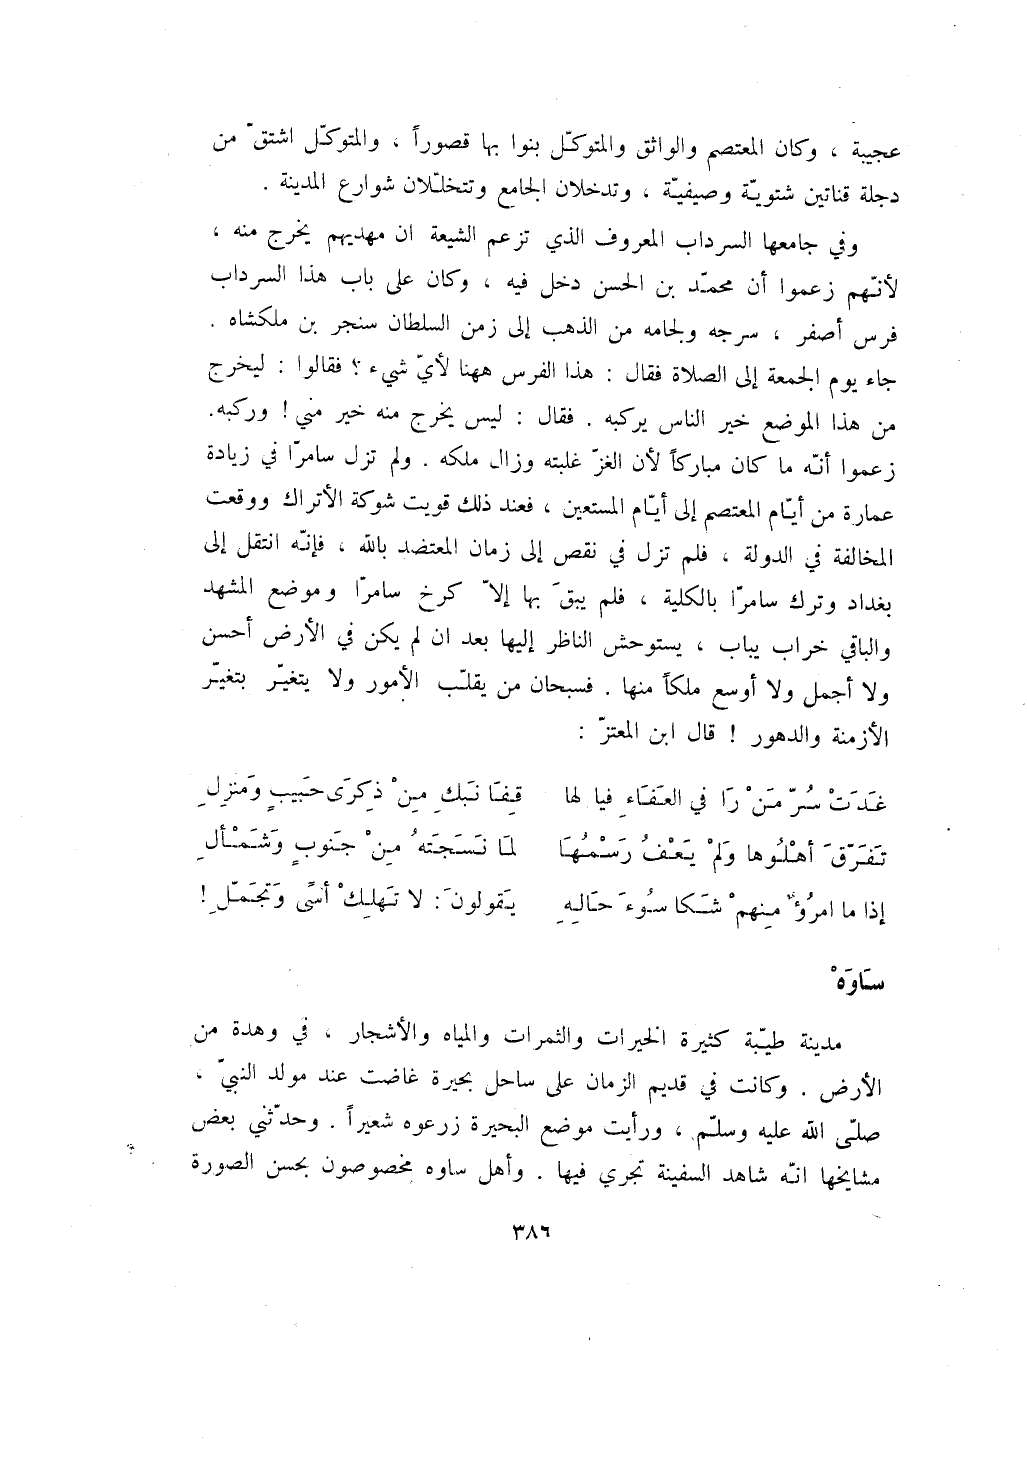 عجيبة ، وكان المعتصم والواثق والمتوكّل بنوا بها قصوراً ، والمتوكّل اشتقّ من
دجلة قناتين شتويّة وصيفيّة ، وتدخلان الجامع وتتخلّلان شوارع المدينة .
وفي جامعها السرداب المعروف الذي تزعم الشيعة ان مهديهم يخرج منه ،
لأنّهم زعموا أن محمّد بن الحسن دخل فيه ، وكان على باب هذا السرداب
فرس أصفر ، سرجه ولجامه من الذهب إلى زمن السلطان سنجر بن ملكشاه .
جاء يوم الجمعة إلى الصلاة فقال : هذا الفرس ههنا لأيّ شيء ؟ فقالوا : ليخرج
من هذا الموضع خير الناس يركبه . فقال : ليس يخرج منه خير مني ! وركبه.
زعموا أنّه ما كان مباركاً لأن الغزّ غلبته وزال ملكه . ولم تزل سامرّا في زيادة
عمارة من أيّام المعتصم إلى أيّام المستعين ، فعند ذلك قويت شوكة الأتراك ووقعت
المخالفة في الدولة ، فلم تزل في نقص إلى زمان المعتضد بالله ، فإنّه انتقل إلى
بغداد وترك سامرّا بالكلية ، فلم يبقَ بها إلاّ كرخ سامرّا وموضع المشهد
والباقي خراب يباب ، يستوحش الناظر إليها بعد ان لم يكن في الأرض أحسن
ولا أجمل ولا أوسع ملكاً منها . فسبحان من يقلّب الأمور ولا يتغيّر بتغيّر
الأزمنة والدهور ! قال ابن المعتزّ :
غَدَتْ سُرّ مَنْ رَا في العَفَاءِ فيا لها قِفَا نَبكِ مِنْ ذِكرَى حَبيبٍ وَمَنزِلِ
تَفَرّقَ أهْلُوها وَلَمْ يَعْفُ رَسْمُهَا لمَا نَسَجَتهُ مِنْ جَنوبٍ وَشَمْألِ
إذا ما امرُؤٌ مِنهمْ شَكا سُوءَ حَالِهِ يَقولونَ : لا تَهلِكْ أسًى وَتجَمّلِ !
سَاوَهْ
مدينة طيّبة كثيرة الخيرات والثمرات والمياه والأشجار ، في وهدة من
الأرض . وكانت في قديم الزمان على ساحل بحيرة غاضت عند مولد النبيّ ،
صلّى الله عليه وسلّم ، ورأيت موضع البحيرة زرعوه شعيراً . وحدّثني بعض
مشايخها انّه شاهد السفينة تجري فيها . وأهل ساوه مخصوصون بحسن الصورة
٣٨٦